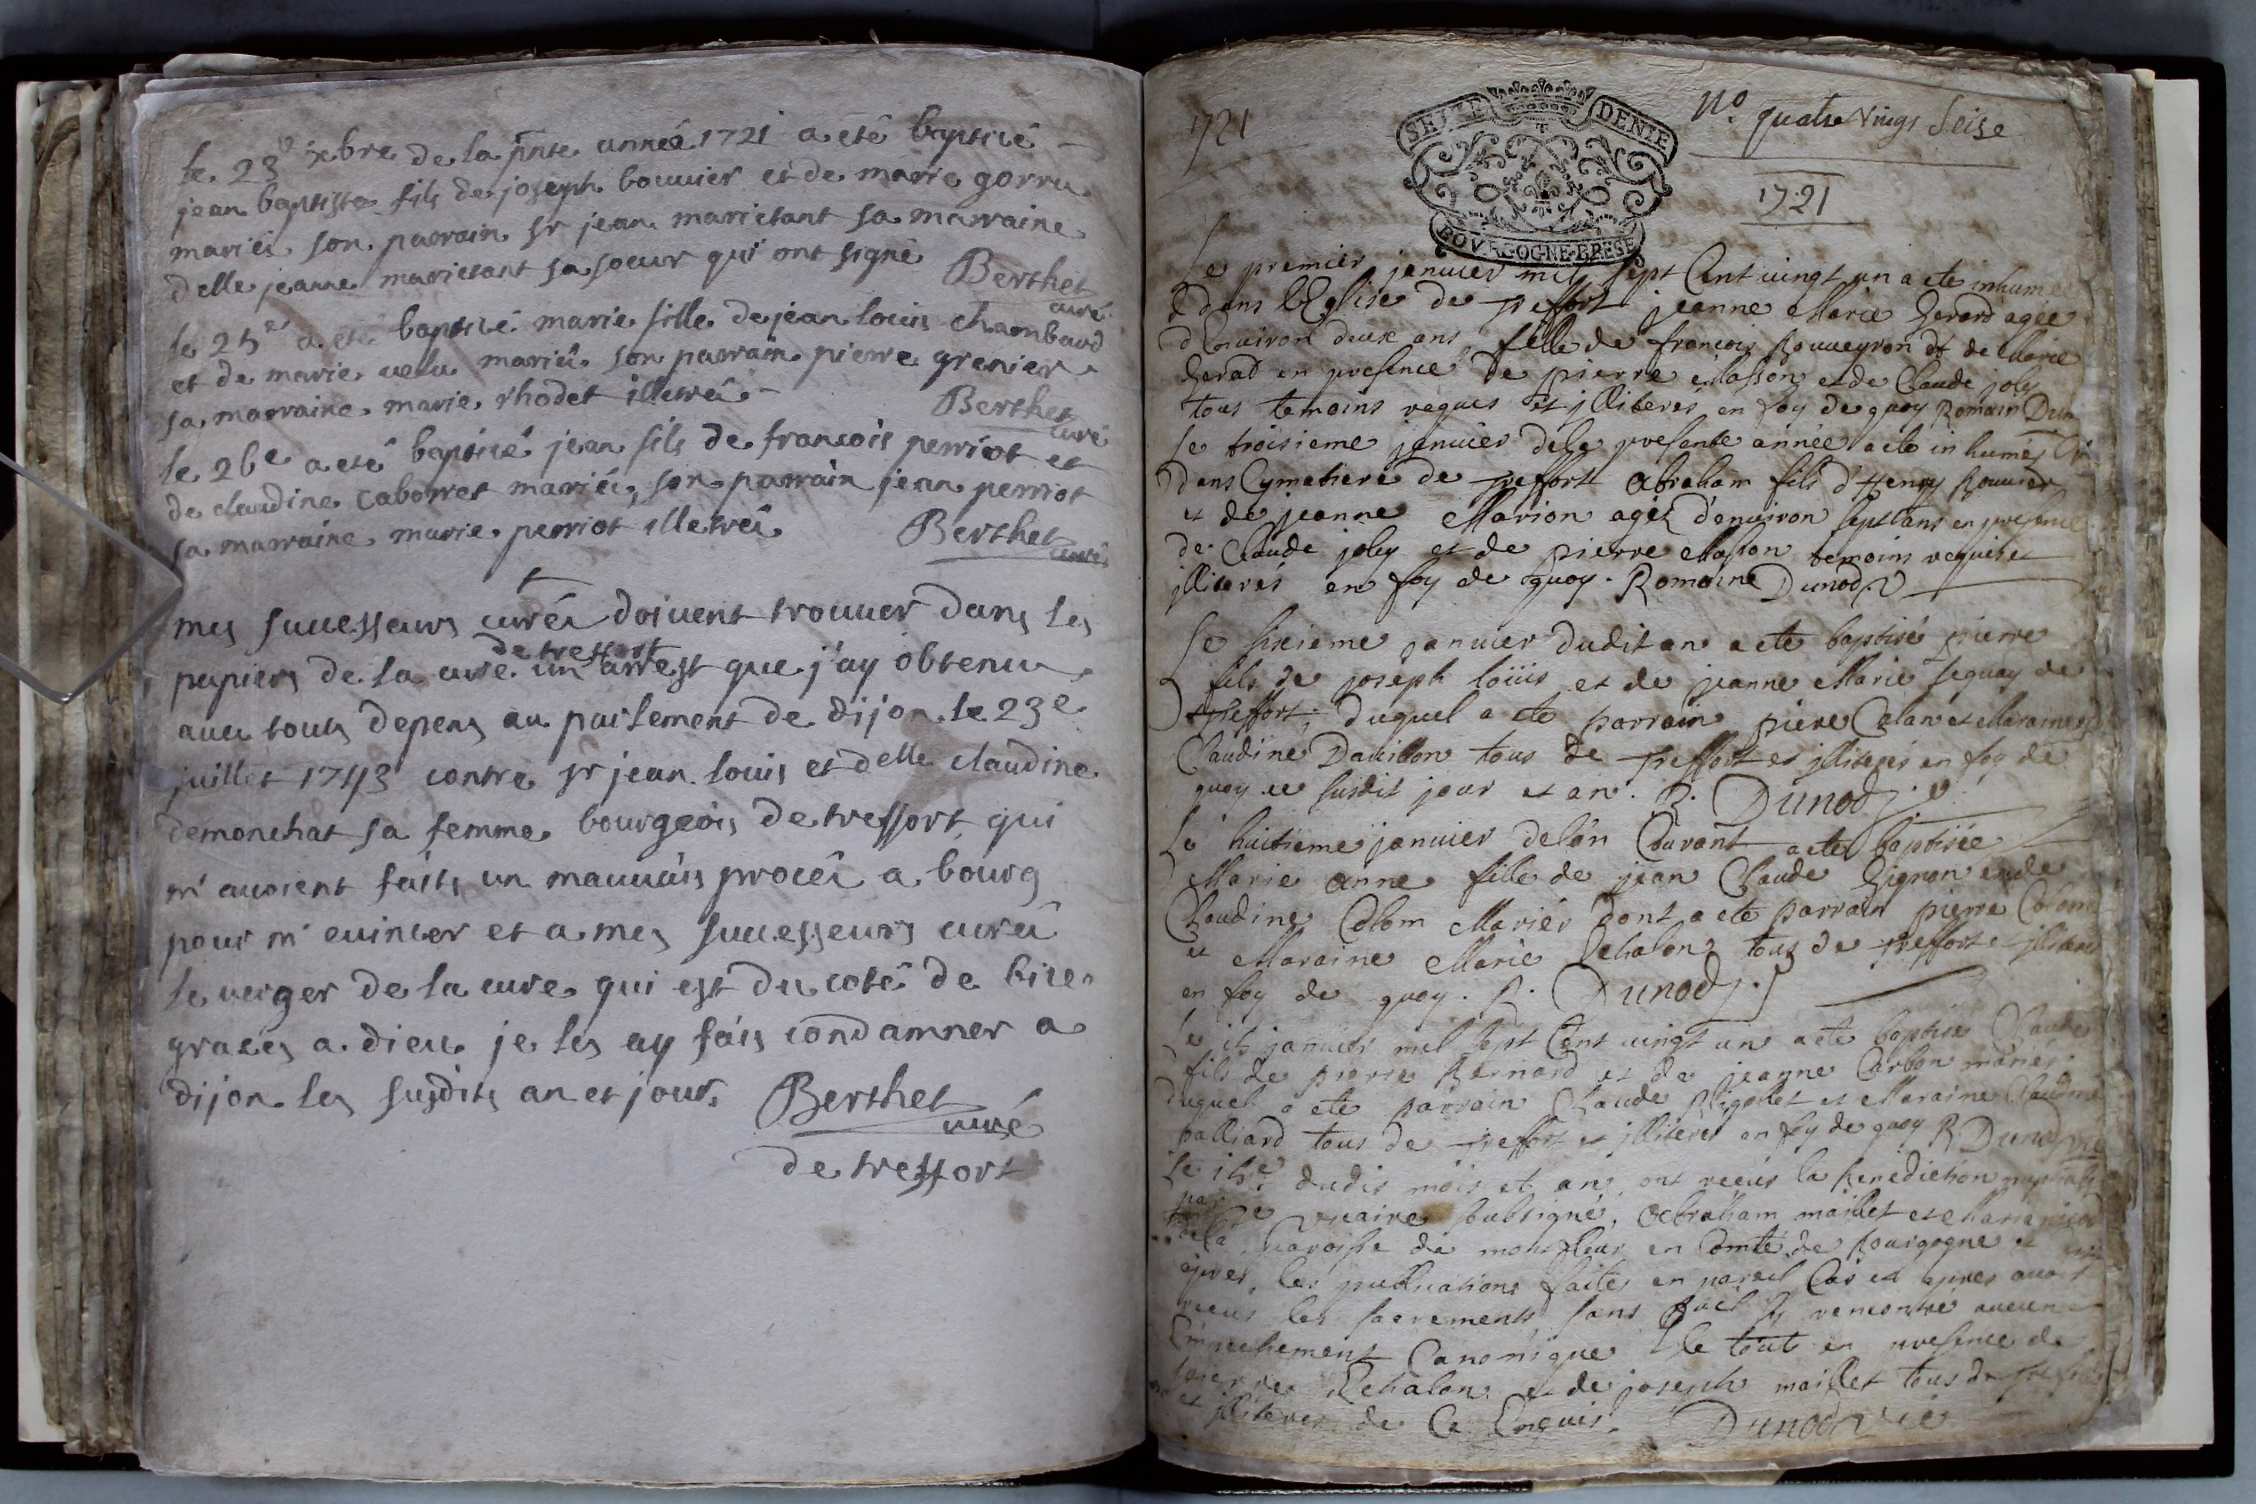 le 23e xbre de la pnte année 1721 a eté baptisé
jean baptiste fils de joseph bouvier et de marie gorru
mariés son parrain sr jean marietant sa marraine
delle jeanne marietant sa soeur qui ont signé
Berthet
curé
le 25e a eté baptisé marie fille de jean louis chambaud
et de marie velu mariés son parrain pierre grenier
sa marraine marie rhodet illetrés
Berthet
curé
le 26e a eté baptisé jean fils de francois perriot et
de claudine caborret mariés, son parrain jean perriot
sa marraine marie perriot illetrés
Berthet
curé
mes successeurs curés doivent trouver dans les
de treffort
papiers de la cure un arrest que j'ay obtenu
avec touts depens au parlement de dijon le 23e
juillet 1743 contre sr jean louis et delle claudine
demonchat sa femme bourgeois de treffort qui
m'avoient faits un mauvais procés a bourg
pour m'evincer et a mes successeurs curés
le verger de la cure qui est du coté de bise
graces a dieu je les ay fais condamner a
dijon les susdits an et jour. Berthet
curé
de treffort
1721
SEIZE DENIE
BOURGOGNE-BRESE
No. quatre vings Seise
1721
Le premier janvier mil sept Cent vingt un a ete inhumé
dans lEglise de treffort jeanne Marie Gerard agée
dEnviron deux ans fille de francois Rouveyron et de Marie
Gerad en presence de pierre Masson et de Claude joly
tous temoins requis et jlliterés en foy de quoy Romain
Le troisieme janvier dela presente année a ete inhumé
dans Cymetiere de treffort Abraham fils d'Henry Rouvier
et de jeanne Marion agez d'environ sept ans en presence
de Claude joly et de pierre Masson temoins requis et
jlliterés en foy de quoy. Romain Dunod. V
Le sixieme janvier dudit an a ete baptisé pierre
fils de joseph loüis et de jeanne Marie seguay de
treffort; duquel a ete parrain piere Colan et Maraine
Claudine Davillon tous de treffort et jlliterés en foy de
quoy ce susdit jour et an. R. Dunod. v
Le huitieme janvier delan Courant a ete baptisée
Marie anne fille de jean Claude Gignon et de
Claudine Colom Mariés dont a ete parrain pierre Colom
et Maraine Marie Echalon tous de treffort
en foy de quoy. R. Dunod.
Le janvier mil sept Cent vingt un a ete baptisé Claude
fils de pierre Bernard et de jeanne Carbon mariés
duquel a ete parrain Claude Rigollet et Maraine Claudine
palliard tous de treffort et jlliteres en foy de quoy R Dunod
Le dudit mois et an, ont receus la benediction nuptiale
par le vicaire soubsigné, Abraham maillet et
de la paroisse de montfleur en Comté de Bourgogne
apres les publications faites en pareil Cas et apres avoir
receus les sacrements sans rencontré aucun
Empechement Canonique le tout en presence de
Echalon et de joseph maillet tous de
et jlliteres de Ce Enquis. Dunod vic